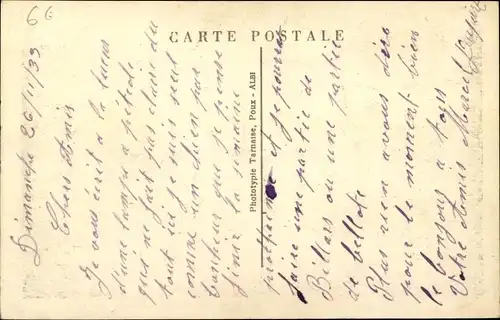 66
CARTE POSTALE
Phototypie Tarnaise, Poux - ALBI
Dimanche 26/11/33
Chers Amis
Je vous écrit a la lueur
d'une lampe a pétrole
qui ne fait pas clair du
tout ici je suis seul
comme un chien par
bonheur que je pense
finir la semaine
prochaine et je pourrai
faire une partie de
Billard ou une partie
de bellote
Plus rien a vous dire
pour le moment bien
le bonjour a tous
Votre Amis Marcel